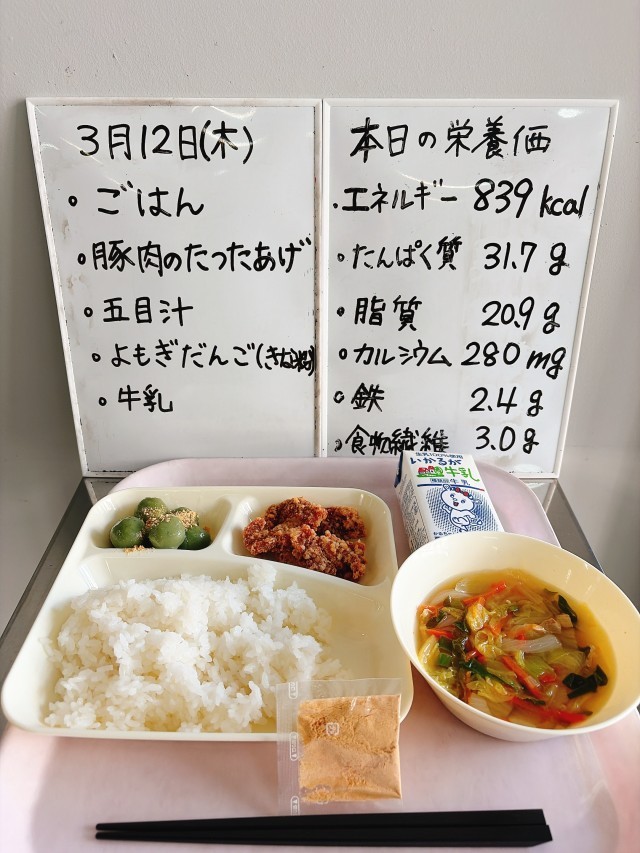 3月12日(木)
・ごはん
・豚肉のたつたあげ
・五目汁
・よもぎだんご(きな粉)
・牛乳
本日の栄養価
・エネルギー 839 kcal
・たんぱく質 31.7 g
・脂質 20.9 g
・カルシウム 280 mg
・鉄 2.4 g
・食物繊維 3.0 g
生乳100%使用
いかるが
牛乳